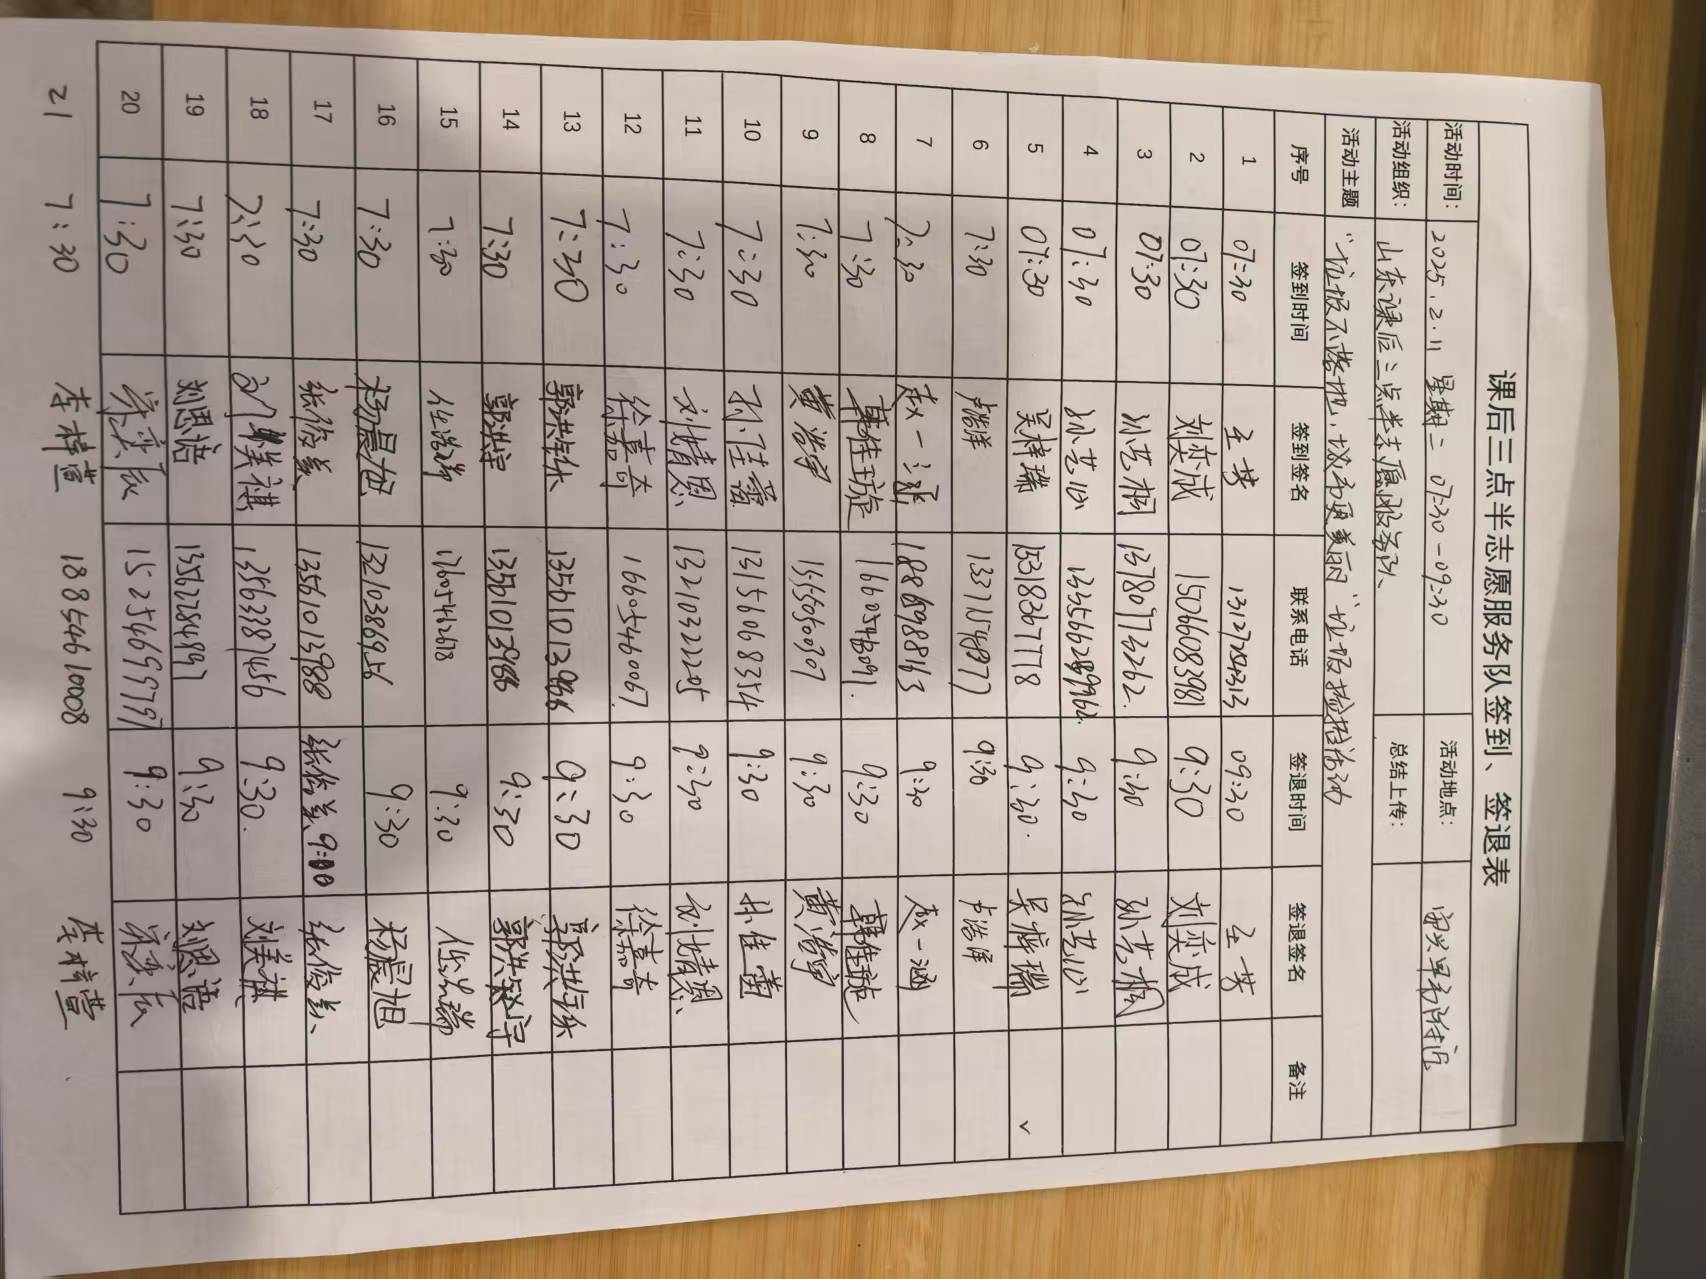 课后三点半志愿服务队签到、签退表
活动时间： 2025.2.11 星期二 07:30-09:30 活动地点：
活动组织： 山东课后三点半志愿服务队 总结上传：
活动主题 "垃圾不落地，城市更美丽"垃圾捡拾活动
序号 签到时间 签到签名 联系电话 签退时间 签退签名 备注
1 07:30 王芳 09:30 王芳
2 07:30 刘奕成 15066083981 9:30 刘奕成
3 07:30 孙艺桐 13780773262 9:30 孙艺桐
4 07:30 孙艺 9:30 孙艺
5 07:30 吴梓瑞 15318367778 9:30 吴梓瑞
6 7:30 卢浩洋 9:30 卢浩洋
7 7:30 赵一涵 18869898863 9:30 赵一涵
8 7:30 韩佳璇 9:30 韩佳璇
9 7:30 黄浩宇 9:30 黄浩宇
10 7:30 孙佳蕾 13156068354 9:30 孙佳蕾
11 7:30 刘婧恩 13210322205 9:30 刘婧恩
12 7:30 徐嘉奇 16605460067 9:30 徐嘉奇
13 7:30 郭洪 9:30 郭洪
14 7:30 郭洪宇 9:30 郭洪宇
15 7:30 任浩瑞 17605462678 9:30 任浩瑞
16 7:30 杨晨旭 13210386956 9:30 杨晨旭
17 7:30 张俊美 13561013988 张俊美 9:00 张俊美
18 7:30 刘美祺 13563387456 9:30 刘美祺
19 7:30 刘思语 13562284891 9:30 刘思语
20 7:30 宋奕辰 15254669797 9:30 宋奕辰
21 7:30 李梓萱 18854610008 9:30 李梓萱